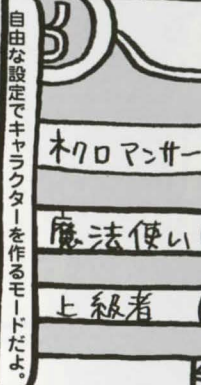 自由な設定でキャラクターを作るモードだよ。
ネクロマンサー
魔法使い
上級者